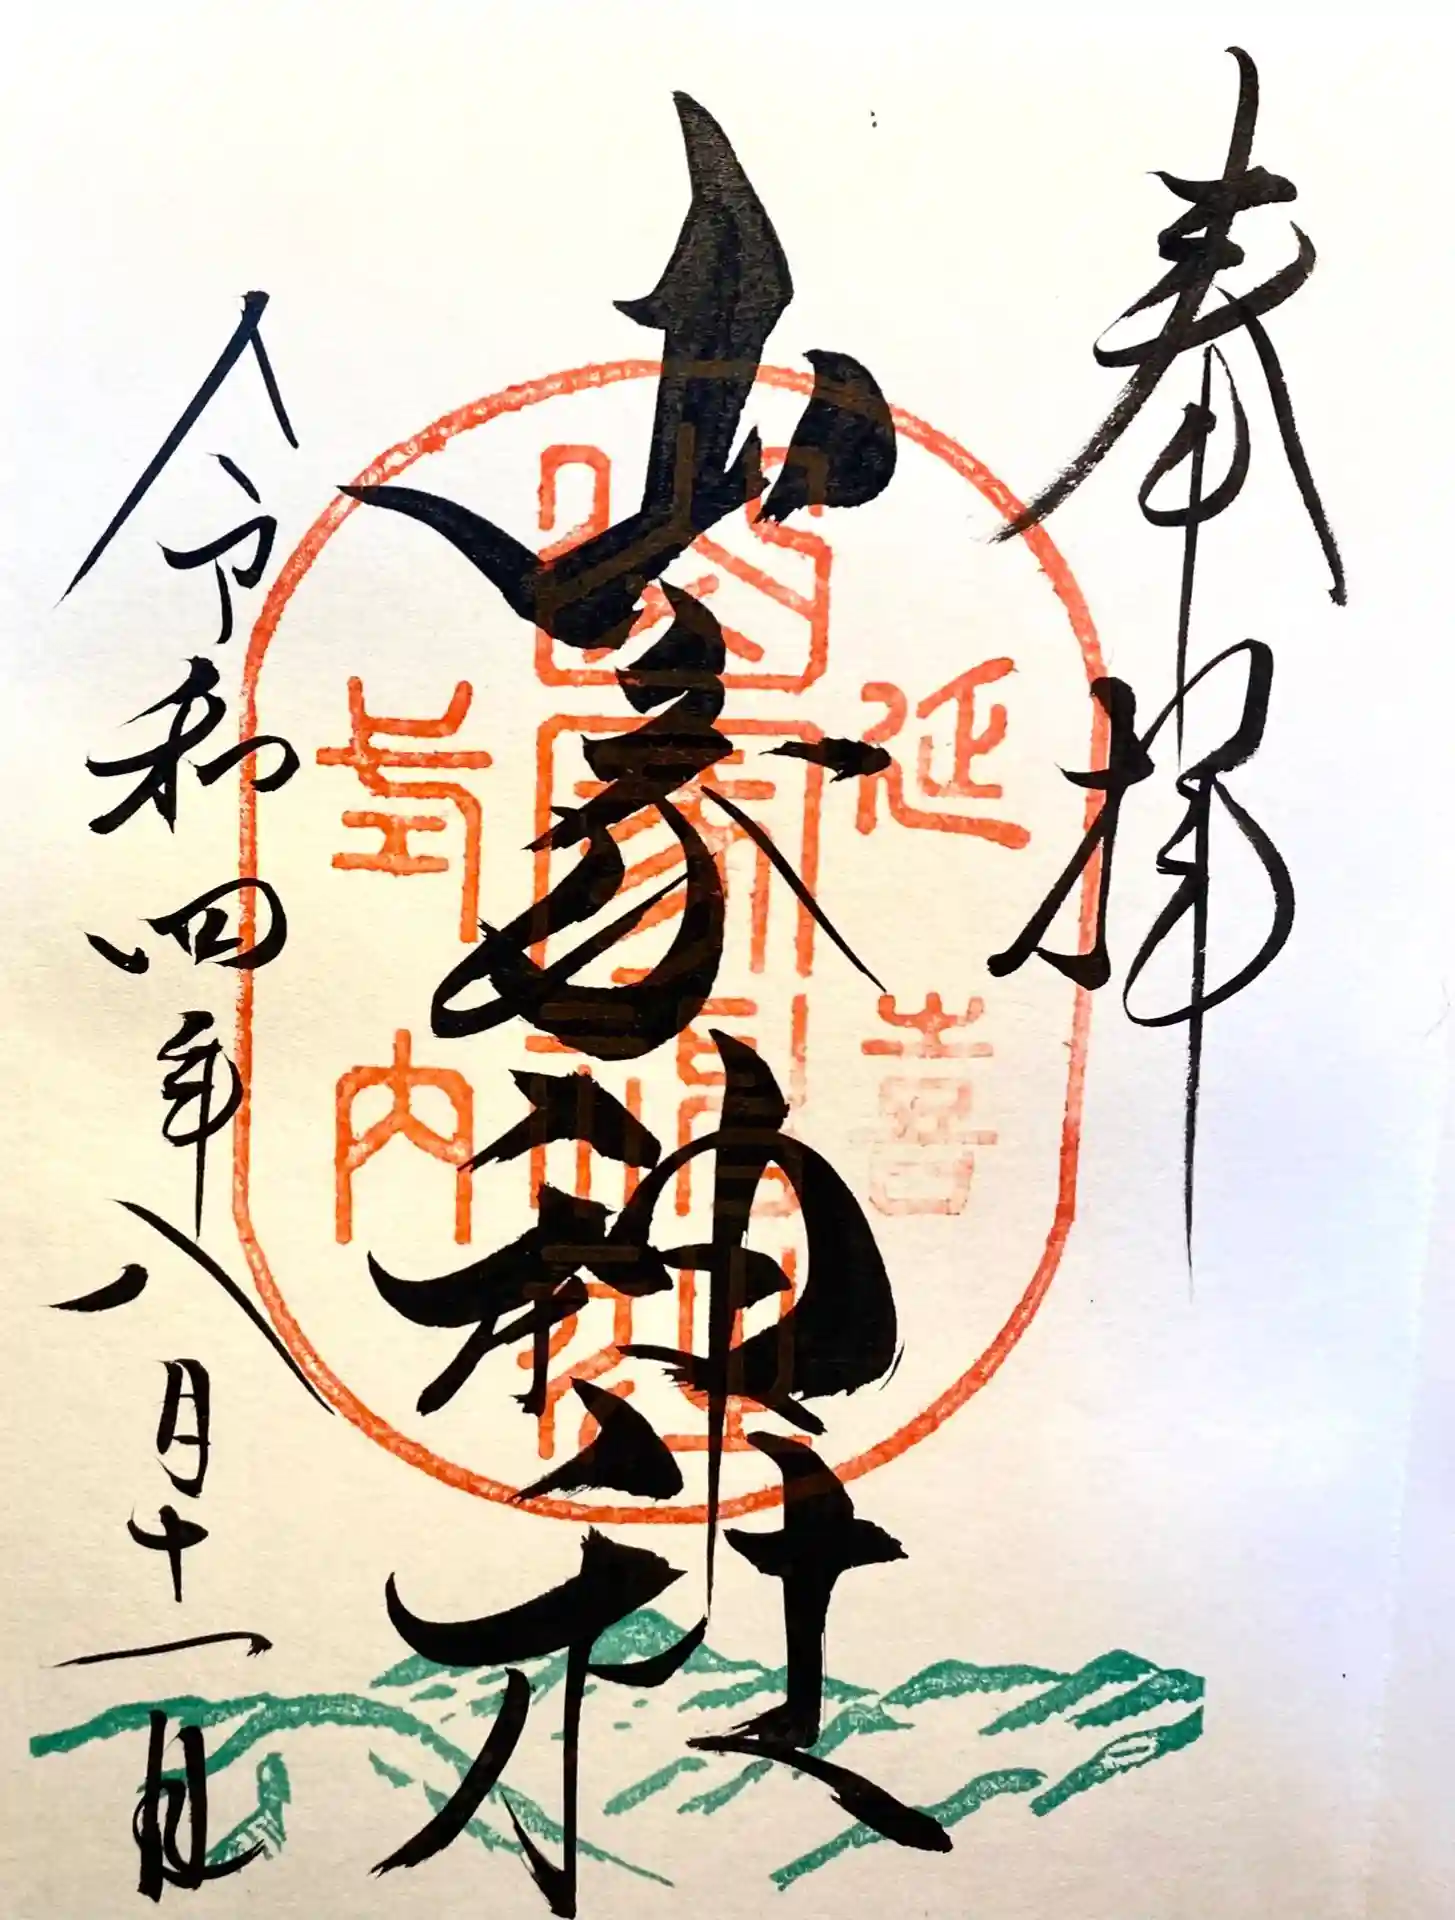 奉拝
山家神社
令和四年八月十一日
延喜
式内